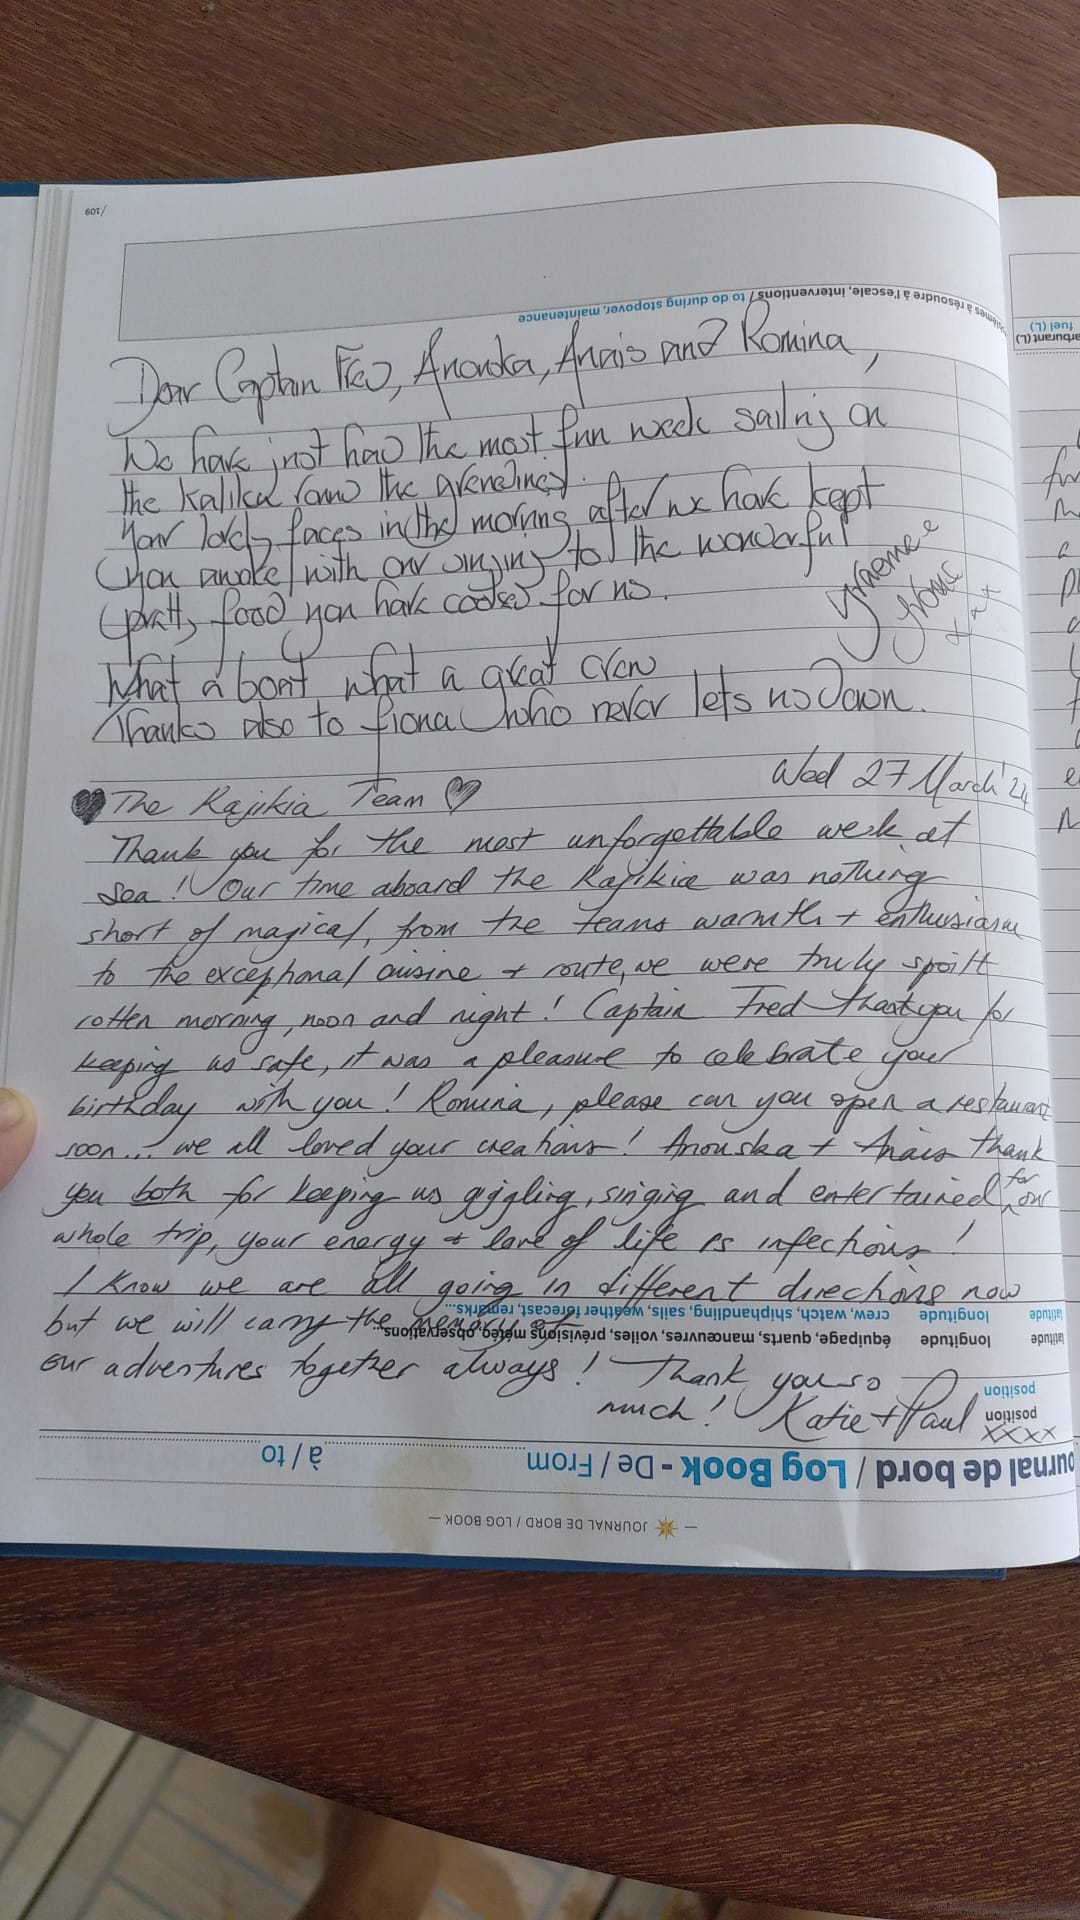 Dear Captain Fred, Anouska, Anais and Romina,
We have just had the most fun week sailing on
the Kajikia round the grenadines.
Your lovely faces in the morning after we have kept
you awake with our singing to the wonderful
pretty food you have cooked for us.
What a boat what a great crew
Thanks also to fiona who never lets us down.
xxx
Wed 27 March '24
The Kajikia Team
Thank you for the most unforgettable week at
sea! Our time aboard the Kajikia was nothing
short of magical, from the teams warmth + enthusiasm
to the exceptional cuisine + route, we were truly spoilt
rotten morning, noon and night! Captain Fred thank you for
keeping us safe, it was a pleasure to celebrate your
birthday with you! Romina, please can you open a restaurant
soon... we all loved your creations! Anouska + Anais thank
you both for keeping us giggling, singing and entertained for our
whole trip, your energy + love of life is infectious!
I know we are all going in different directions now
but we will carry the memory of
our adventures together always! Thank you so
much! Katie + Paul
xxxx
/109
problèmes à résoudre à l'escale, interventions / to do during stopover, maintenance
carburant (L)
fuel (L)
latitude longitude crew, watch, shiphandling, sails, weather forecast, remarks...
latitude longitude équipage, quarts, manœuvres, voiles, prévisions météo, observations...
position
position
Journal de bord / Log Book - De / From à / to
— JOURNAL DE BORD / LOG BOOK —